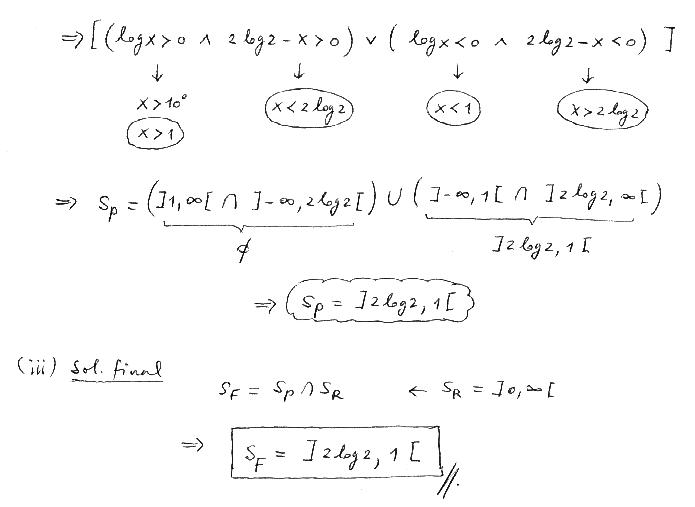 ⇒ [ (log x > 0 ∧ 2 log 2 - x > 0) ∨ ( log x < 0 ∧ 2 log 2 - x < 0) ]
↓ ↓ ↓ ↓
x > 10⁰ x < 2 log 2 x < 1 x > 2 log 2
x > 1
⇒ Sp = ( ]1, ∞[ ∩ ]-∞, 2 log 2[ ) ∪ ( ]-∞, 1[ ∩ ]2 log 2, ∞[ )
∅ ]2 log 2, 1[
⇒ Sp = ]2 log 2, 1[
(iii) Sol. final
S_F = Sp ∩ S_R ← S_R = ]0, ∞[
⇒ S_F = ]2 log 2, 1[ //.